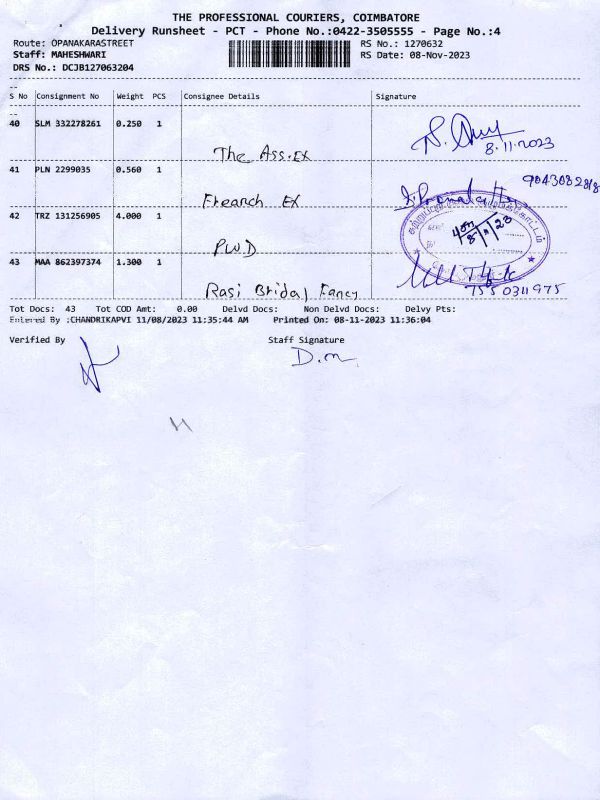 THE PROFESSIONAL COURIERS, COIMBATORE
Delivery Runsheet - PCT - Phone No.:0422-3505555 - Page No.:4
Route: OPANAKARASTREET RS No.: 1270632
Staff: MAHESHWARI RS Date: 08-Nov-2023
DRS No.: DCJB127063204
S No Consignment No Weight PCS Consignee Details Signature
40 SLM 332278261 0.250 1
8.11.2023
The Ass.Ex
41 PLN 2299035 0.560 1
9043082818
Frearch Ex
42 TRZ 131256905 4.000 1
8/11/23
PWD
43 MAA 862397374 1.300 1
Rasi Bridal Fancy 7550311975
Tot Docs: 43 Tot COD Amt: 0.00 Delvd Docs: Non Delvd Docs: Delvy Pts:
Entered By :CHANDRIKAPVI 11/08/2023 11:35:44 AM Printed On: 08-11-2023 11:36:04
Verified By Staff Signature
D.m